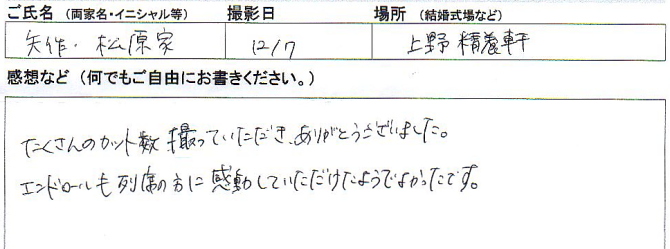 ご氏名 (両家名・イニシャル等) 撮影日 場所 (結婚式場など)
矢作・松原家 12/7 上野精養軒
感想など (何でもご自由にお書きください。)
たくさんのカット数撮っていただき、ありがとうございました。
エンドロールも列席の方に感動していただけたようでよかったです。